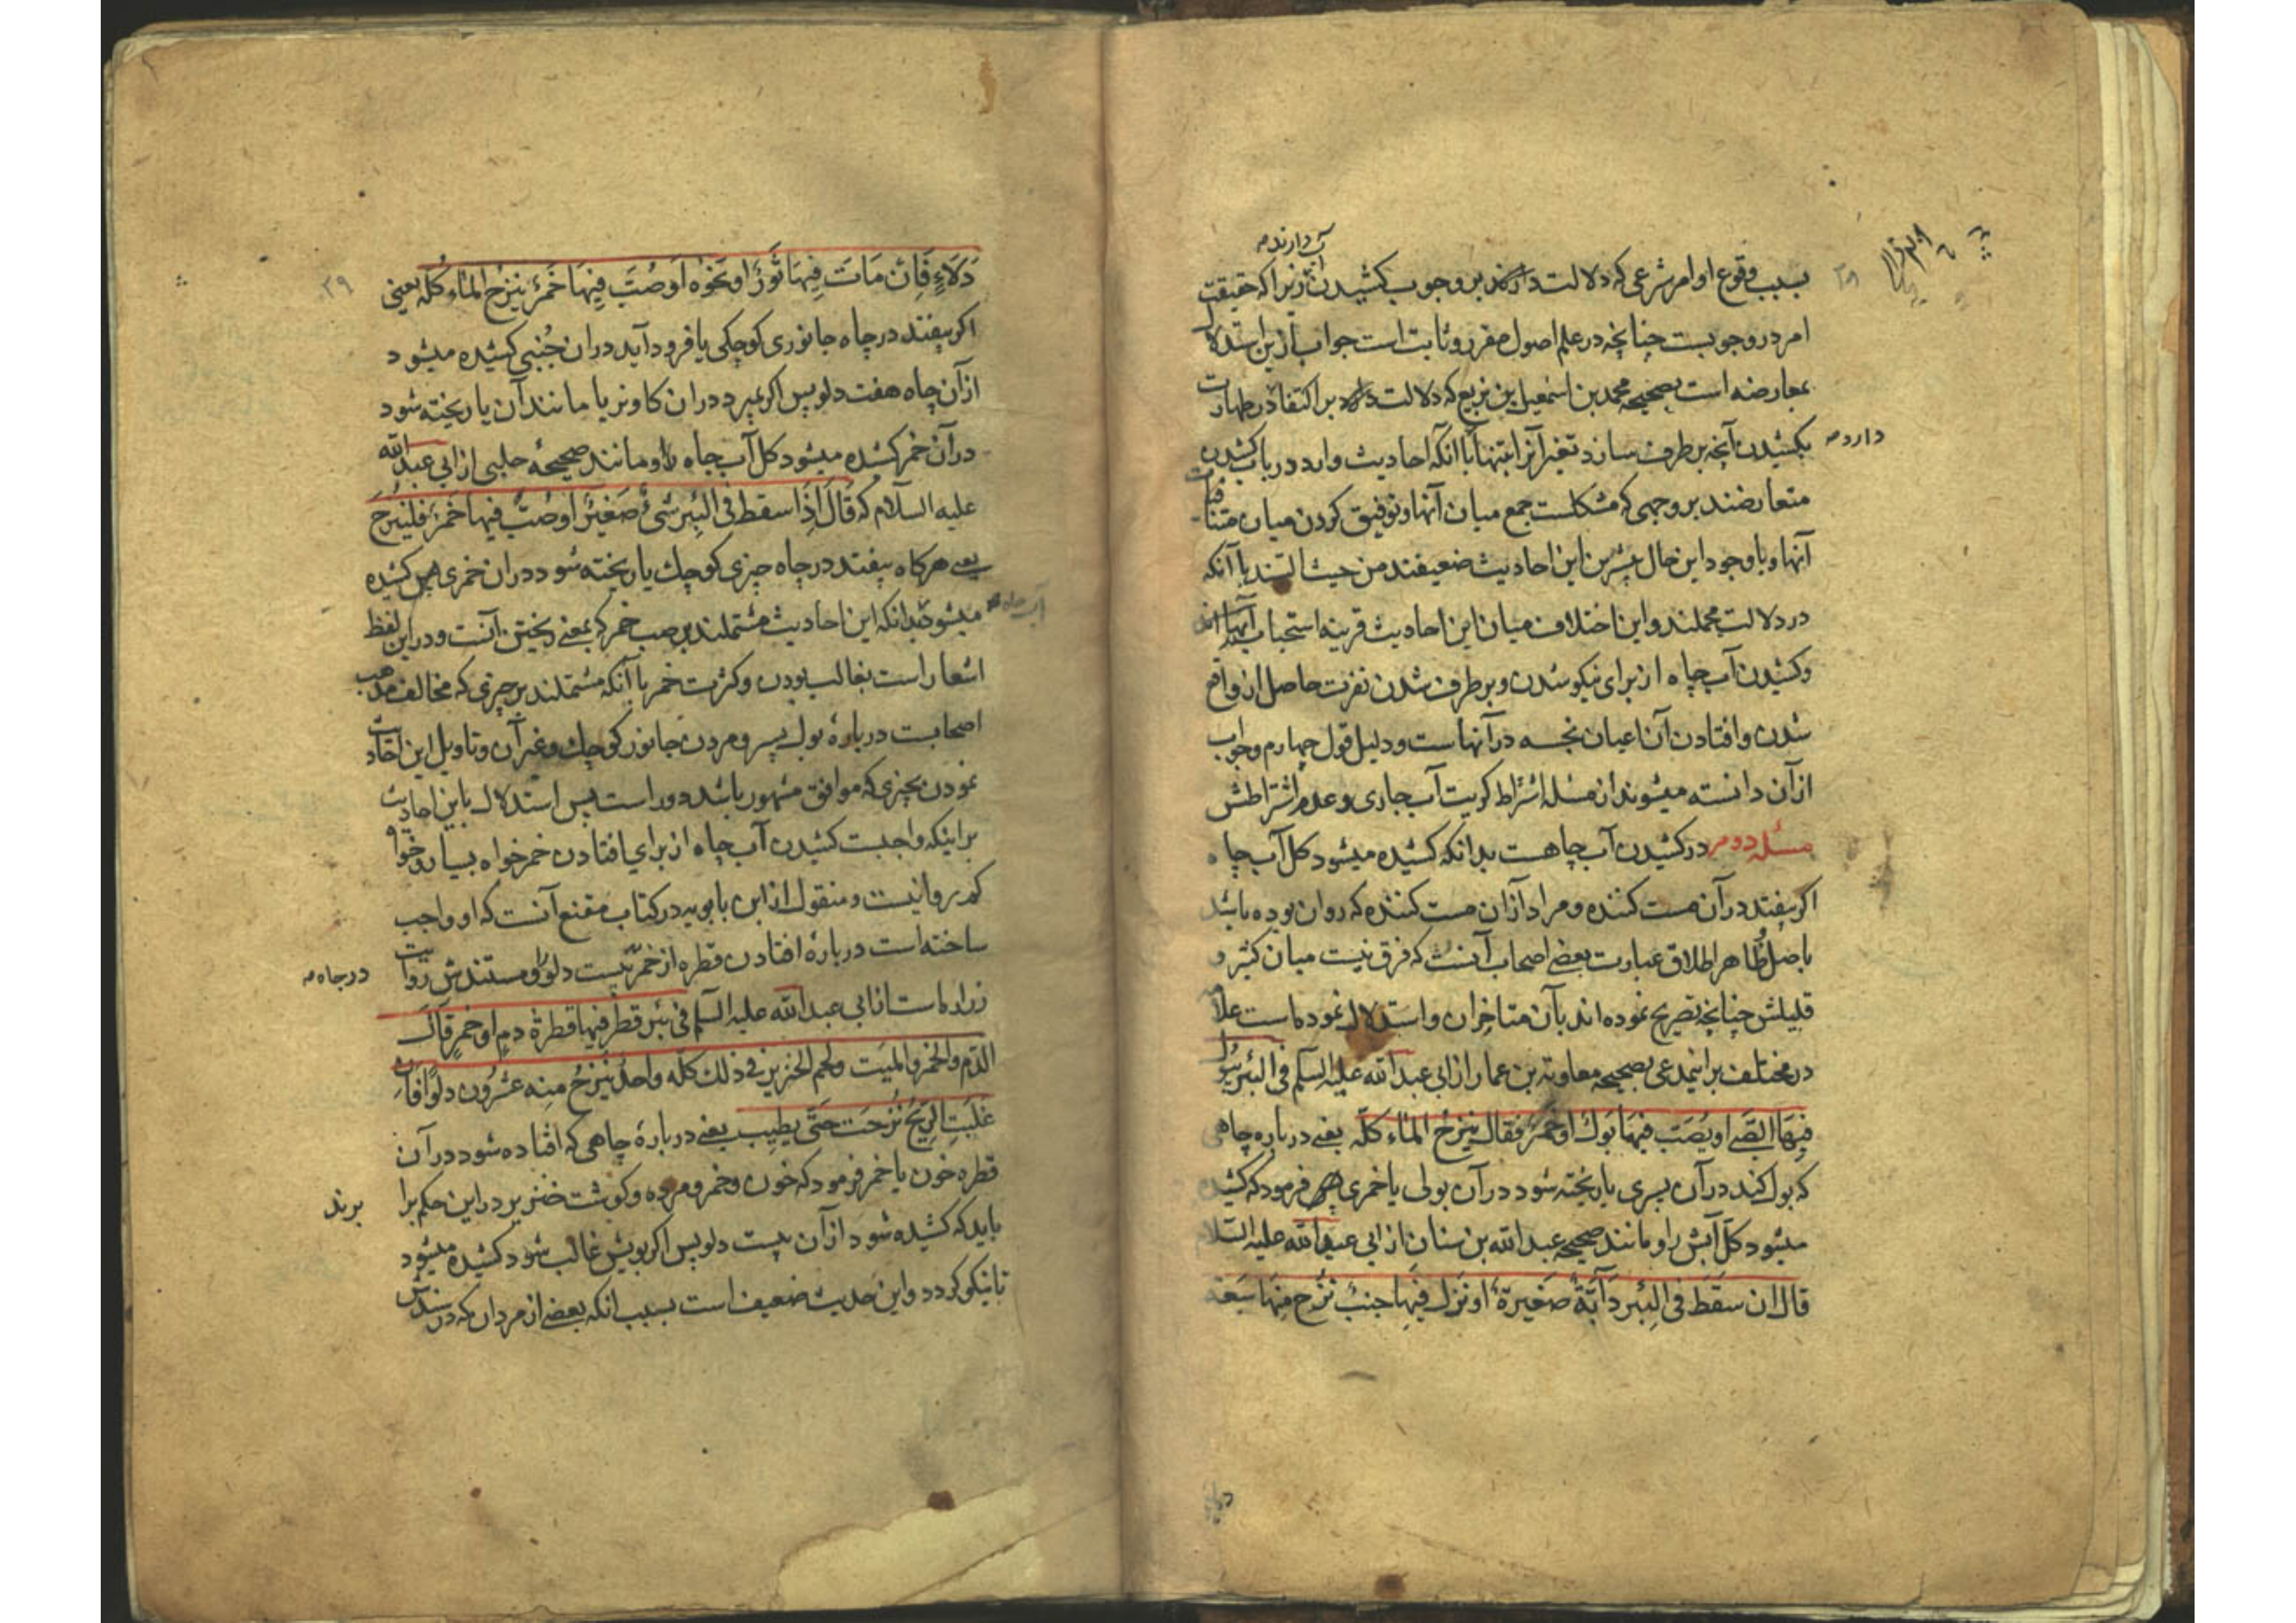 آب دارند
بسبب وقوع اوامر شرعی که دلالت دارند بر وجوب کشیدن ازیرا که حقیقت
امر در وجوبست چنانچه در علم اصول مقرر و ثابت است جواب ازین استدلال
بمعارضه است بصحیحه محمد بن اسمعیل بن بزیع که دلالت بر اکتفا در طهارت
دارد
بکشیدن آنچه برطرف سازد تغیر آنرا بتنها با آنکه احادیث وارد در باب کشیدن
متعارضند بر وجهی که مشکلست جمع میان آنها و توفیق کردن میان متنافیات
آنها و با وجود این حال بیشترین این احادیث ضعیفند من حیث السند با آنکه
در دلالت مجملند و این اختلاف میان این احادیث قرینه استحباب آنها
و کشیدن آب چاه از برای نیکو شدن و برطرف شدن نفرت حاصل از واقع
شدن و افتادن آن اعیان نجسه در آنهاست و دلیل قول چهارم و جواب
از آن دانسته میشوند از مسئله اشتراط کریت آب جاری و عدم اشتراطش
مسئله دوم در کشیدن آب چاهست بدانکه کشیده میشود کل آب چاه
اکر بیفتد در آن مست کننده و مراد از آن مست کننده که روان بوده باشد
باصل ظاهر اطلاق عبارت بعضی اصحاب آنست که فرق نیست میان کثیر و
قلیلش چنانچه تصریح نموده اند بآن متاخران و استدلال نموده است علامه
در مختلف بر اینمدعی بصحیحه معاویة بن عمار از ابی عبد الله علیه السلم فی البئر یبول
فِیهَا الصَّبی او یُصَبّ فیهَا بَول او خَمرٌ فقال یُنزحُ المآء کلّه یعنی درباره چاهی
که بول کند در آن پسری یا ریخته شود در آن بولی یا خمری فرمود که کشیده
میشود کل آبش را و مانند صحیحه عبد الله بن سنان از ابی عبد الله علیه السلام
قال ان سَقَط فی البِئر دَآبّةٌ صَغیرة او نَزل فیهَا جنبٌ نُزح مِنهَا سَبعَة
دَلاءٍ فَاِن مَاتَ فِیهَا ثَورٌ او نَحوُه او صُبَّ فِیهَا خَمرٌ یُنزحُ المآء کُلّه یعنی
اکر بیفتد در چاه جانوری کوچکی یا فرود آید در ان جُنبی کشیده میشود
از آن چاه هفت دلو پس اکر بمیرد در ان کاو نر یا مانند آن یا ریخته شود
در آن خمر کشیده میشود کل آب چاه و مانند صحیحهٔ حلبی از ابی عبد الله
علیه السلام که قَالَ اِذَا سقط فی البِئر شئٌ صَغیرٌ او صُبّ فیهَا خَمرٌ فلیُنزح
یعنی هرکاه بیفتد در چاه چیزی کوچک یا ریخته شود در ان خمری پس کشیده
آب چاه
میشود بدانکه این احادیث مشتملند بر صب خمر که بمعنی ریختن آنست و در این لفظ
اشعار است بغالب بودن و کثرت خمر با آنکه مشتملند بر چیزی که مخالف مذهب
اصحابست درباره بول پسر و مردن جانور کوچک و غیر آن و تاویل این احادیث
نمودن بچیزی که موافق مشهور باشد دور است پس استدلال باین احادیث
براینکه واجبست کشیدن آب چاه از برای افتادن خمر خواه بسیار و خواه
کم روا نیست و منقول از ابن بابویه در کتاب مقنع آنست که او واجب
ساخته است دربارهٔ افتادن قطره از خمر بیست دلو را و مستندش روایت
در چاه
زراره است از ابی عبد الله علیه السلم فی بئر قطر فیها قطرة دم او خمر قال
الدّم والخمر والمیّت ولحم الخنزیر فی ذلک کلّه واحد یُنزحُ منِه عشرُون دلوًا فان
غلبَتِ الرّیحُ نُزحَت حَتّی یطِیب یعنی دربارهٔ چاهی که افتاده شود در آن
قطره خون یا خمر فرمود که خون و خمر و مرده و کوشت خنزیر در این حکم برا
برند
باید که کشیده شود از آن بیست دلو پس اکر بویش غالب شود کشیده میشود
تا نیکو کردد و این حدیث ضعیف است بسبب انکه بعضی از مردان که در سندش